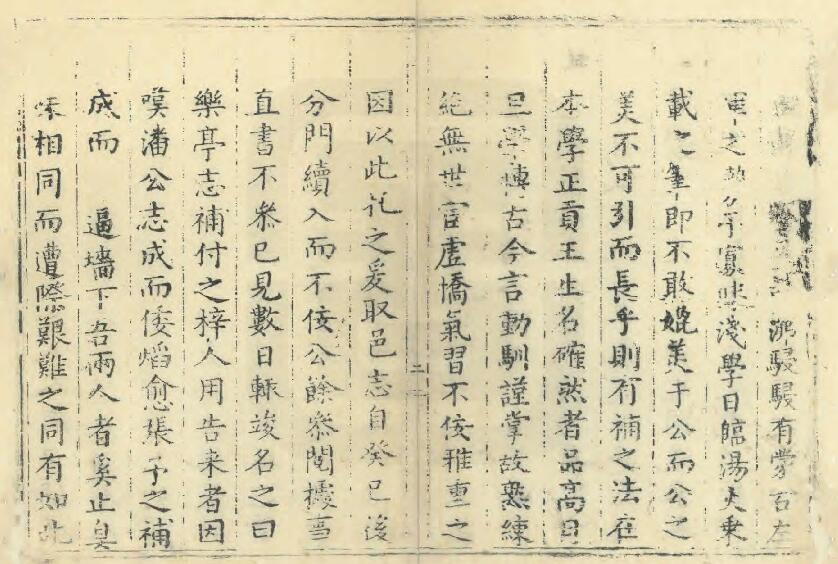 駸駸有蒙石左
之 寡昧淺學日臨湯火東
載之筆即不敢媲美于公而公之
美不可引而長乎則有補之法在
本學正貢王生名確然者品高月
旦學博古今言動馴謹掌故熟練
絕無世官虛憍氣習不佞雅重之
因以此托之爰取邑志自癸巳後
分門續入而不佞公餘參閱據事
直書不參已見數日輒竣名之曰
樂亭志補付之梓人用告来者因
嘆潘公志成而倭熖愈張予之補
成而 逼墻下吾兩人者奚止臭
味相同而遭際艱難之同有如此
二